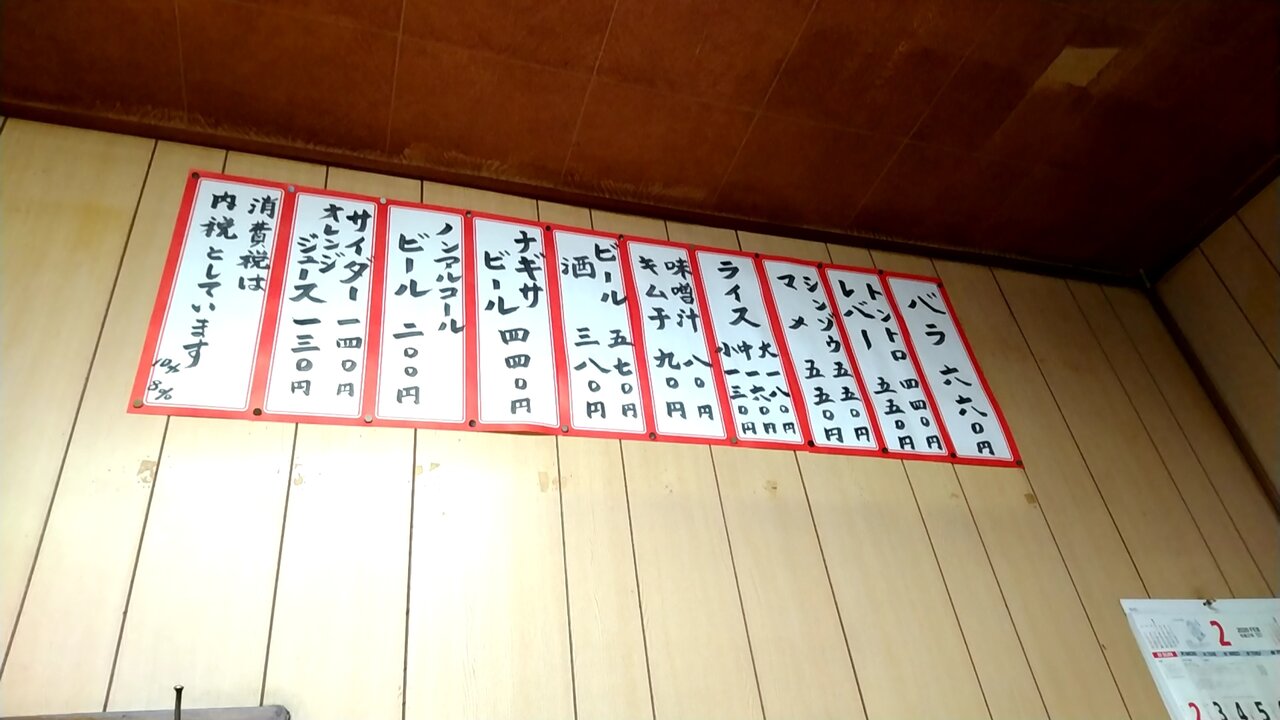 バラ 六六〇円
トントロ 四四〇円
レバー 五五〇円
シンゾウ 五五〇円
マメ 五五〇円
ライス 大 一八〇円
中 一六〇円
小 一三〇円
味噌汁 八〇円
キムチ 九〇円
ビール 五七〇円
酒 三八〇円
ナギサ
ビール 四四〇円
ノンアルコール
ビール 二〇〇円
サイダー 一四〇円
オレンジ
ジュース 一三〇円
消費税は
内税としています
10%
8%
2
2 3 4 5